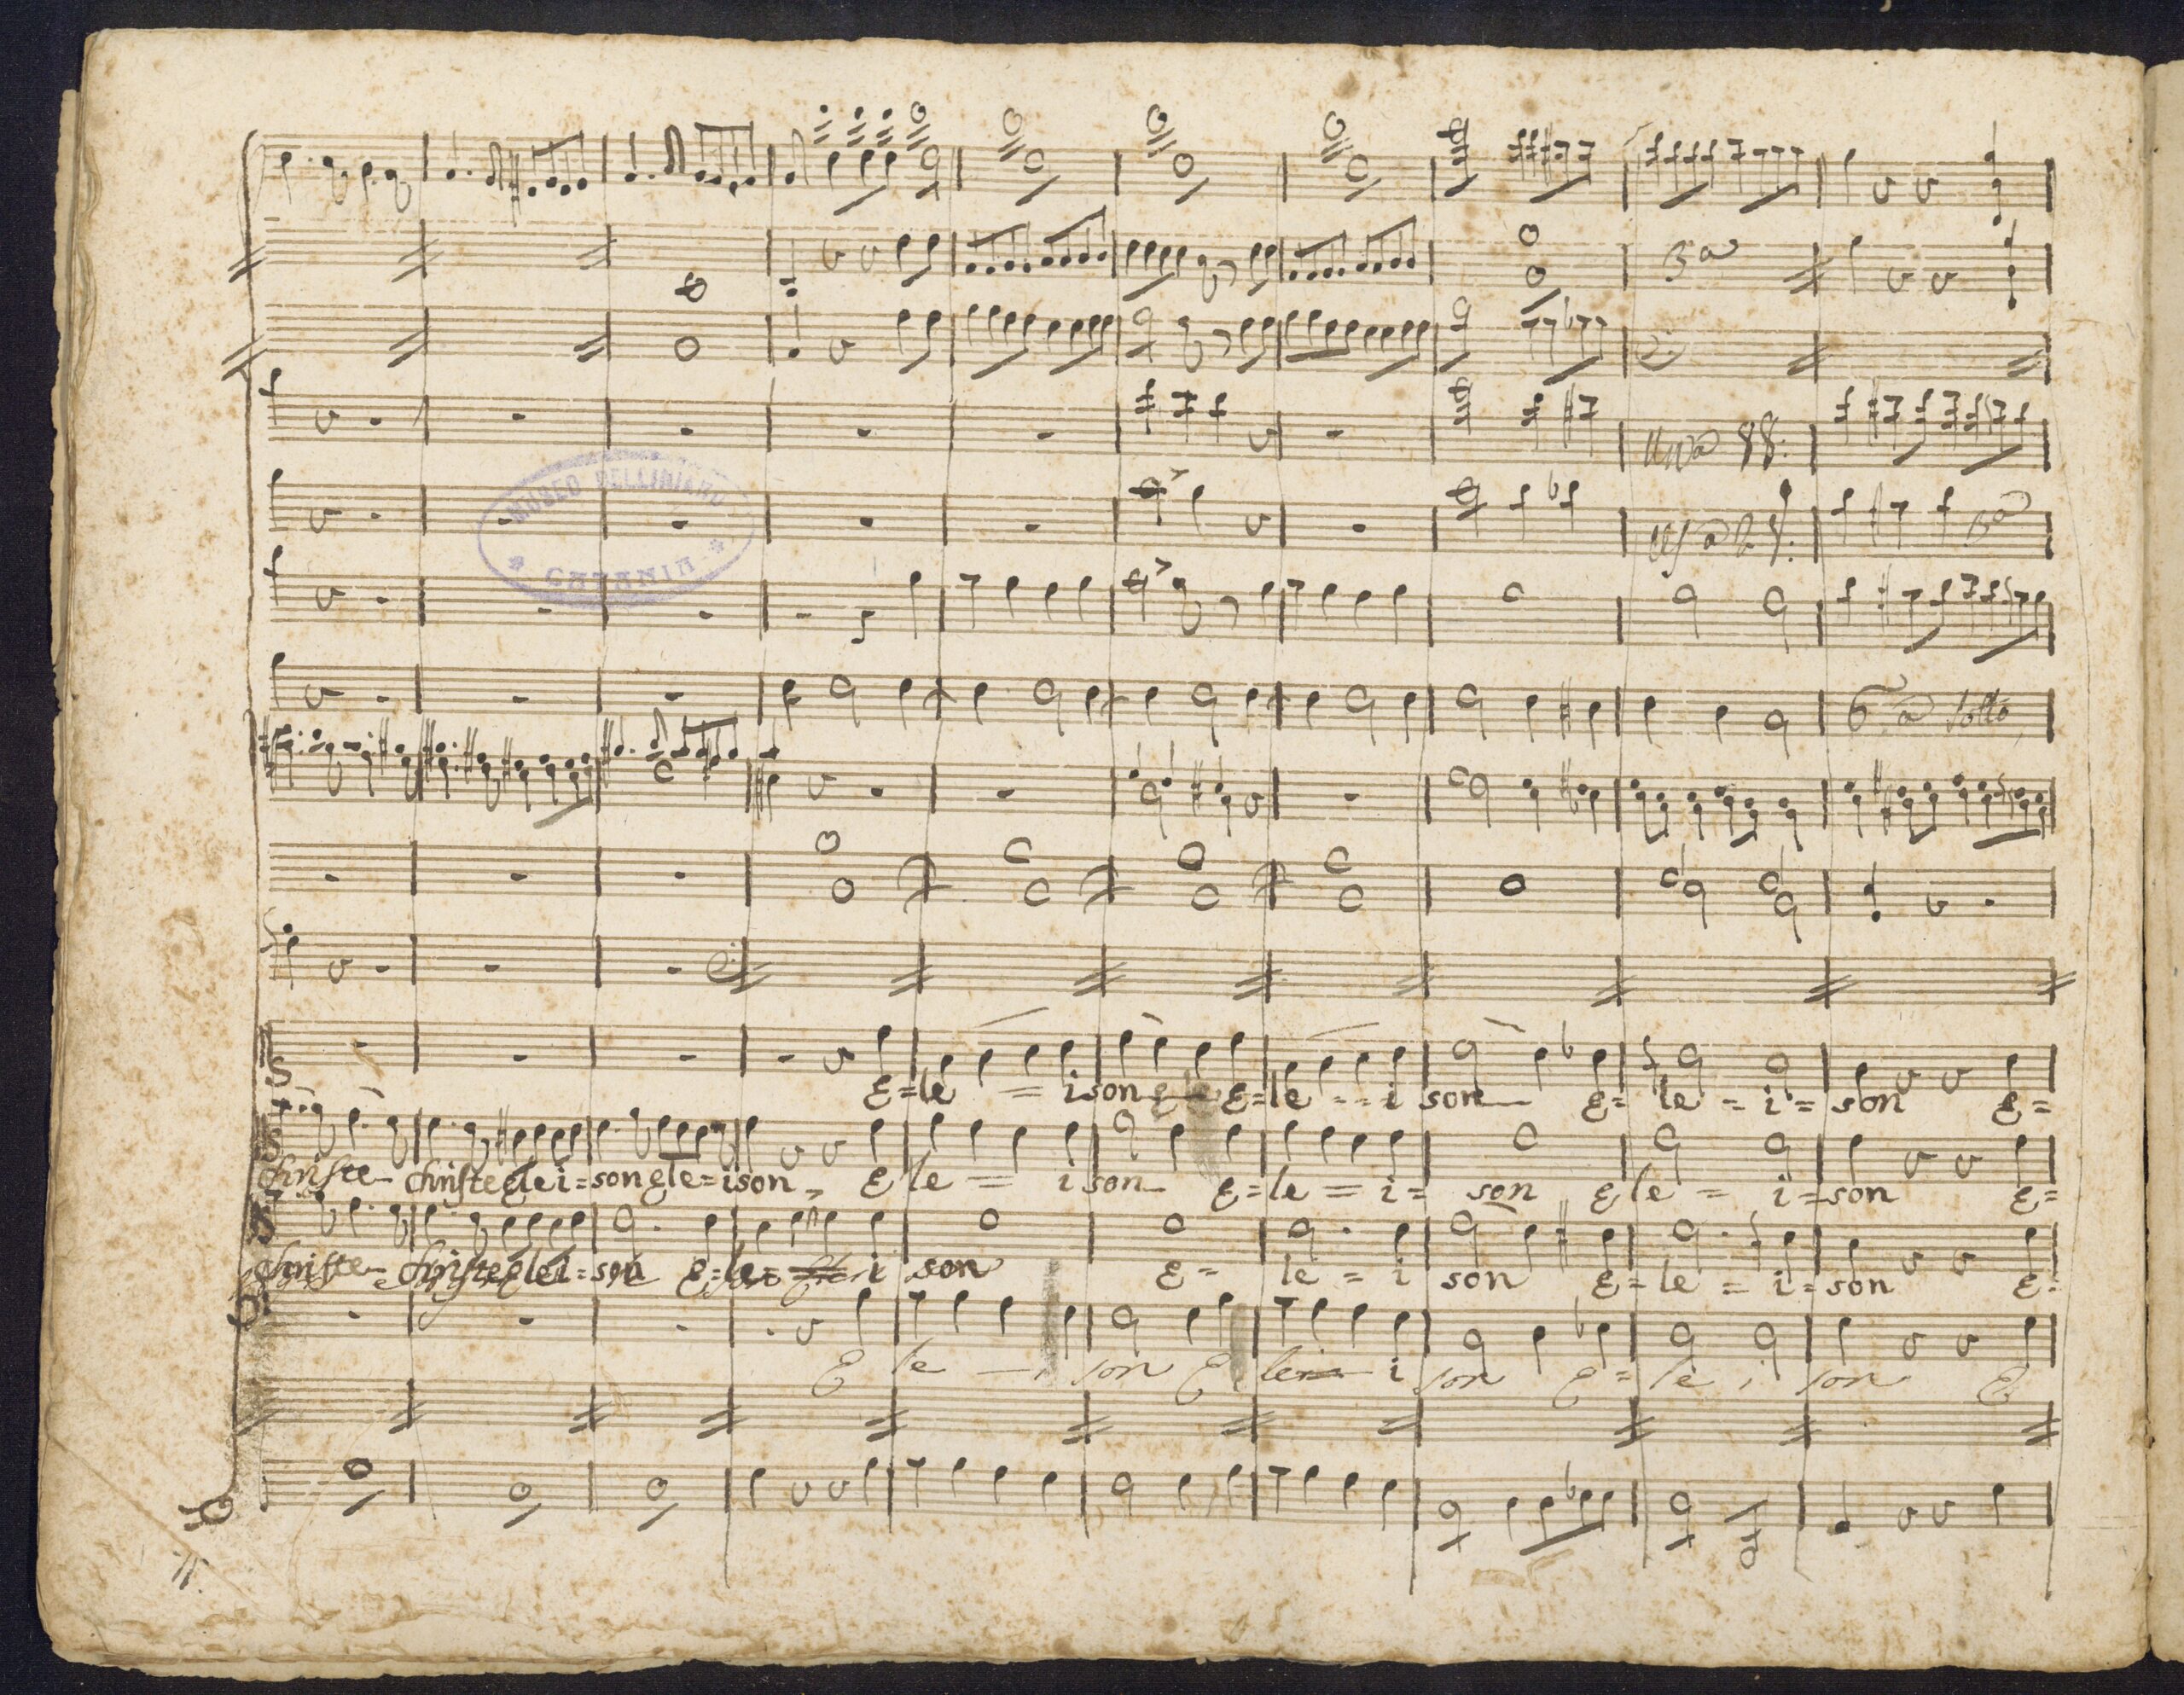 3a
Unis 88:
MUSEO BELLINIANO
* CATANIA *
a 2
8a
6a sotto
E = le = i son E = le - - i son E = le - i = son E =
christe - christe elei = son ele = ison, E le = i son E = le = i = son E le = i = son E =
christe - christe elei = son E = le = i son E - le = i son E = le = i = son E =
E le - i son E le i son E = le i son E